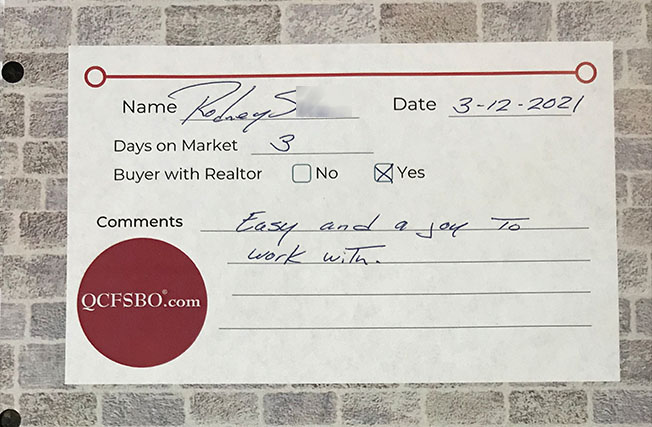 Name Rodney S Date 3-12-2021
Days on Market 3
Buyer with Realtor No Yes
Comments Easy and a joy To
work with.
QCFSBO®.com